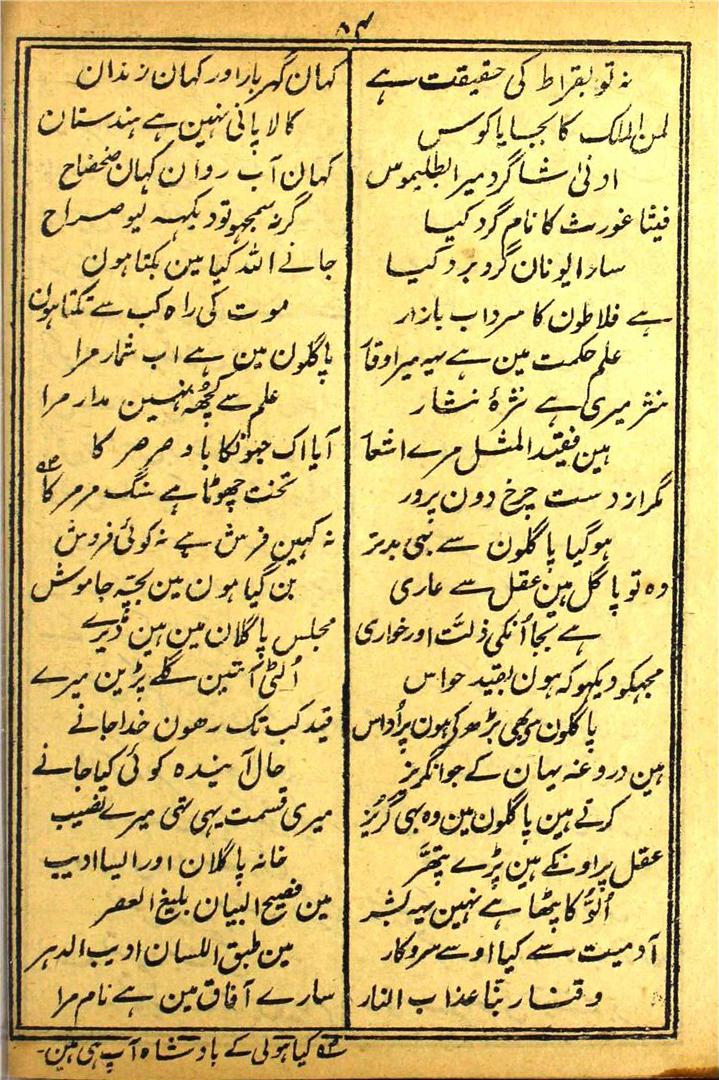 ۸۴
نہ تو بقراط کی حقیقت ہے
لمن الملک کا بجایا کوس
ادنیٰ شاگرد میرا بطلیموس
فیثا غورث کا نام گرد کیا
سارا یونان گرد برد کیا
ہے فلاطون کا سرد اب بازار
علم حکمت مین ہے یہہ میرا وقار
نثر میری ہے نثرۂ نثار
ہین فقید المثل مرے اشعار
مگر از دست چرخ دون پرور
ہو گیا پاگلون سے بہی بدتر
وہ تو پاگل ہین عقل سے عاری
ہے بجا اُنکی ذلت اور خواری
مجہکو دیکہو کہ ہون بقید حواس
پاگلون سے بھی بڑھ کر ہون پر اُداس
ہین دروغہ یہان کے جو انگریز
کرتے ہین پاگلون مین وہ بہی گریز
عقل پر اونکے ہین پڑے پتھّر
اُلّو کا پٹھا ہے نہین یہہ بشر
آدمیت سے کیا اوسے سروکار
وقنا ربّنا عذاب النار
کہان گہر بار اور کہان زندان
کالا پانی نہین ہے ہندستان
کہان آب روان کہان ضحضاح
گر نہ سمجہو تو دیکہہ لیو صراح
جانے اللہ کیا مین بکتا ہون
موت کی راہ کب سے تکتا ہون
پاگلون مین ہے اب شمار مرا
علم سے کچُھہ نہین مدار مرا
آیا اک جھونکا باد صرصر کا
تخت چھوٹا ہے سنگ مرمر کا
نہ کہین فرش ہے نہ کوئی فروش
بن گیا ہون مین بچۂ جاموش
مجلس پاگلان مین ہین ڈیرے
اُلٹی آنتین گلے پڑین میرے
قید کب تک رھون خدا جانے
حال آیندہ کوئی کیا جانے
میری قسمت یہی تہی میرے نصیب
خانہ پاگلان اور ایسا ادیب
مین فصیح البیان بلیغ العصر
مین طبق اللسان ادیب الدہر
سارے آفاق مین ہے نام مرا
کیا ہولی کے بادشاہ آپ ہی ہین۔